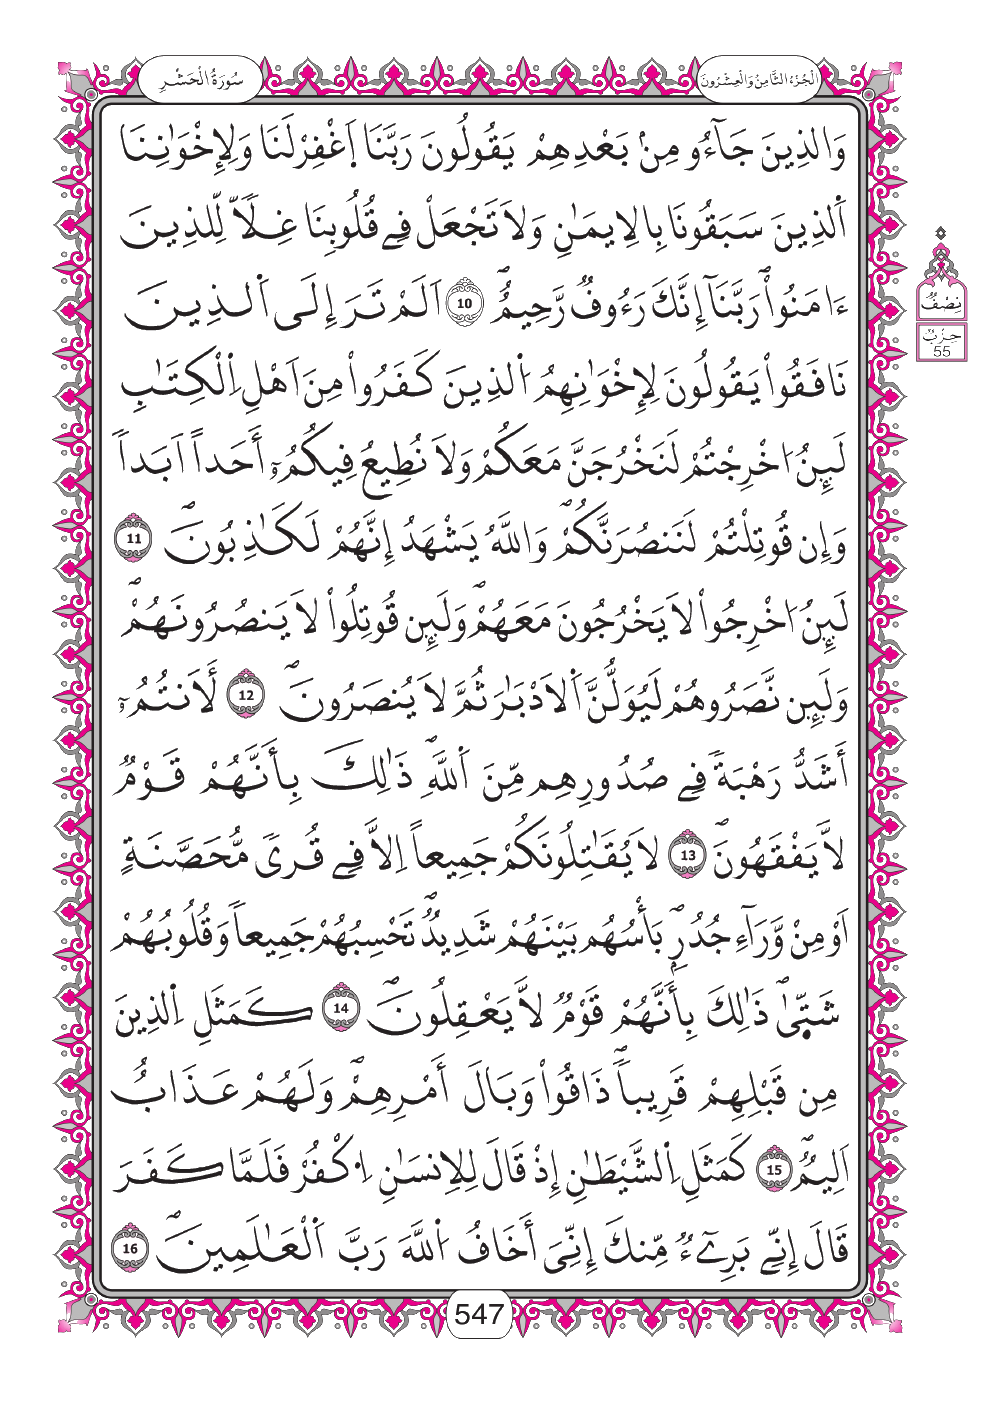 سُورَةُ الْحَشْرِ
الْجُزْءُ الثَّامِنُ وَالْعِشْرُونَ
وَالذِينَ جَآءُو مِنۢ بَعْدِهِمْ يَقُولُونَ رَبَّنَا اَ۪غْفِرْ لَنَا وَلِإِخْوَٰنِنَا
اَ۬لذِينَ سَبَقُونَا بِالِايمَٰنِ وَلَا تَجْعَلْ فِے قُلُوبِنَا غِلّاٗ لِّلذِينَ
ءَامَنُواْۖ رَبَّنَآ إِنَّكَ رَءُوفٞ رَّحِيمٌۖ 10 اَلَمْ تَرَ إِلَى اَ۬لذِينَ
نَافَقُواْ يَقُولُونَ لِإِخْوَٰنِهِمُ اُ۬لذِينَ كَفَرُواْ مِنَ اَهْلِ اِ۬لْكِتَٰبِ
لَئِنُ ا۟خْرِجْتُمْ لَنَخْرُجَنَّ مَعَكُمْ وَلَا نُطِيعُ فِيكُمُۥٓ أَحَداً اَبَداٗ
وَإِن قُوتِلْتُمْ لَنَنصُرَنَّكُمْۖ وَاللَّهُ يَشْهَدُ إِنَّهُمْ لَكَٰذِبُونَۖ 11
لَئِنُ ا۟خْرِجُواْ لَا يَخْرُجُونَ مَعَهُمْۖ وَلَئِن قُوتِلُواْ لَا يَنصُرُونَهُمْۖ
وَلَئِن نَّصَرُوهُمْ لَيُوَلُّنَّ اَ۬لَادْبَٰرَ ثُمَّ لَا يُنصَرُونَۖ 12 لَأَنتُمُۥٓ
أَشَدُّ رَهْبَةٗ فِے صُدُورِهِم مِّنَ اَ۬للَّهِۖ ذَٰلِكَ بِأَنَّهُمْ قَوْمٞ
لَّا يَفْقَهُونَۖ 13 لَا يُقَٰتِلُونَكُمْ جَمِيعاً اِلَّا فِے قُرىٗ مُّحَصَّنَةٍ
اَوْ مِنْ وَّرَآءِ جُدُرٖۖ بَأْسُهُم بَيْنَهُمْ شَدِيدٞۖ تَحْسِبُهُمْ جَمِيعاٗ وَقُلُوبُهُمْ
شَتّ۪ىٰۖ ذَٰلِكَ بِأَنَّهُمْ قَوْمٞ لَّا يَعْقِلُونَۖ 14 كَمَثَلِ اِ۬لذِينَ
مِن قَبْلِهِمْ قَرِيباٗۖ ذَاقُواْ وَبَالَ أَمْرِهِمْۖ وَلَهُمْ عَذَابٌ
اَلِيمٞۖ 15 كَمَثَلِ اِ۬لشَّيْطَٰنِ إِذْ قَالَ لِلِانسَٰنِ اِ۟كْفُرْ فَلَمَّا كَفَرَ
قَالَ إِنِّے بَرِےٓءٞ مِّنكَ إِنِّيَ أَخَافُ اُ۬للَّهَ رَبَّ اَ۬لْعَٰلَمِينَۖ 16
نِصْفُ
حِزْبُ
55
547